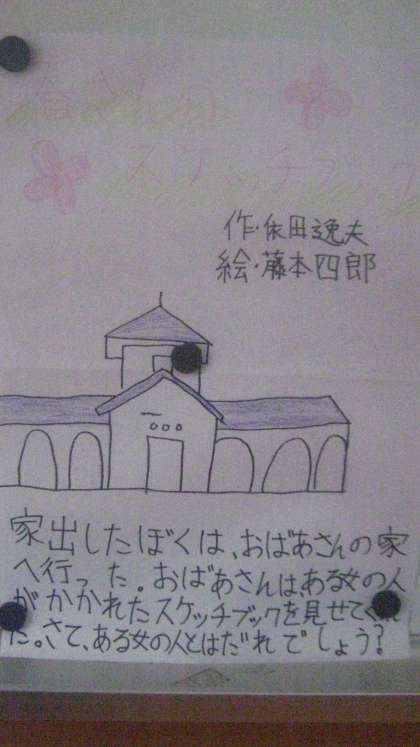 スケッチブック
作・依田逸夫
絵・藤本四郎
家出したぼくは、おばあさんの家
へ行った。おばあさんは、ある女の人
がかかれたスケッチブックを見せてくれ
た。さて、ある女の人とはだれでしょう?